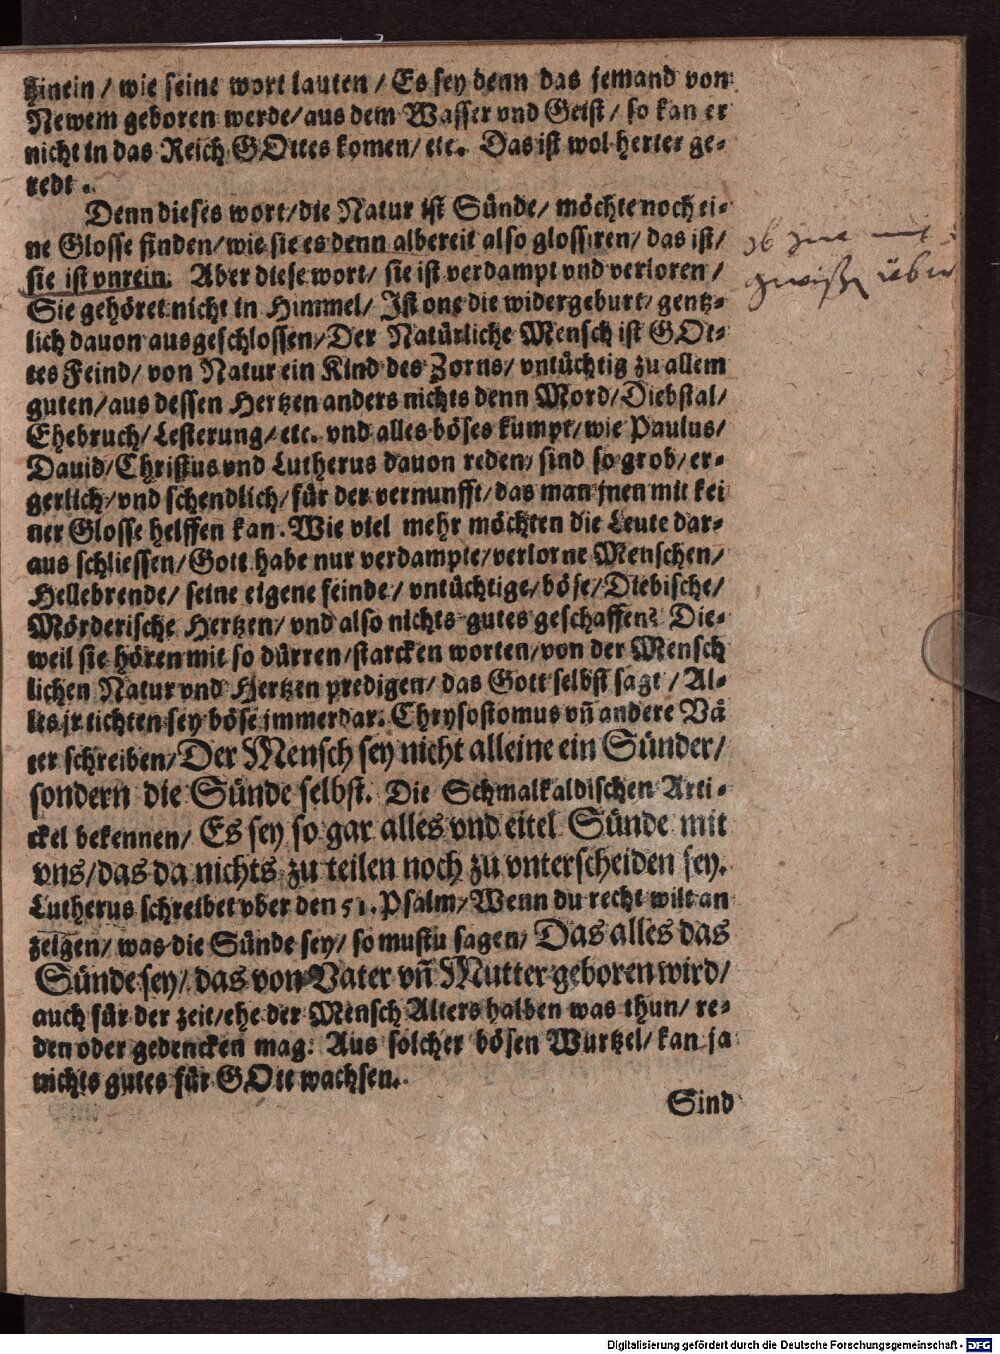 hinein / wie seine wort lauten / Es sey denn das jemand von
Newem geboren werde/ aus dem Wasser vnd Geist/ so kan er
nicht in das Reich GOttes komen/ etc. Das ist wol herter ge-
redt.
Denn dieses wort/ die Natur ist Sünde/ möchte noch ei-
ne Glosse finden/ wie sie es denn albereit also glossiren/ das ist/
sie ist vnrein. Aber diese wort/ sie ist verdampt vnd verloren /
Sie gehöret nicht in Himmel/ Ist one die widergeburt/ gentz-
lich dauon ausgeschlossen/ Der Natürliche Mensch ist GOt-
tes Feind/ von Natur ein Kind des Zorns/ vntüchtig zu allem
guten/ aus dessen Hertzen anders nichts denn Mord/ Diebstal/
Ehebruch/ Lesterung/ etc. vnd alles böses kumpt/ wie Paulus/
Dauid/ Christus vnd Lutherus dauon reden/ sind so grob/ er-
gerlich/ vnd schendlich/ für der vernunfft/ das man jnen mit kei
ner Glosse helffen kan. Wie viel mehr möchten die Leute dar-
aus schliessen/ Gott habe nur verdampte/ verlorne Menschen/
Hellebrende/ seine eigene feinde/ vntüchtige/ böse/ Diebische/
Mörderische Hertzen/ vnd also nichts gutes geschaffen? Die-
weil sie hören mit so dürren/ starcken worten/ von der Mensch
lichen Natur vnd Hertzen predigen/ das Gott selbst sagt / Al-
les jr tichten sey böse jmmerdar. Chrysostomus vn̄ andere Vä
ter schreiben/ Der Mensch sey nicht alleine ein Sünder/
sondern die Sünde selbst. Die Schmalkaldischen Arti-
ckel bekennen/ Es sey so gar alles vnd eitel Sünde mit
vns/ das da nichts zu teilen noch zu vnterscheiden sey.
Lutherus schreibet vber den 51. Psalm/ Wenn du recht wilt an
zeigen/ was die Sünde sey/ so mustu sagen/ Das alles das
Sünde sey/ das von Vater vn̄ Mutter geboren wird/
auch für der zeit/ ehe der Mensch Alters halben was thun/ re-
den oder gedencken mag: Aus solcher bösen Wurtzel/ kan ja
nichts gutes für GOtt wachsen.
Sind
Digitalisierung gefördert durch die Deutsche Forschungsgemeinschaft - DFG